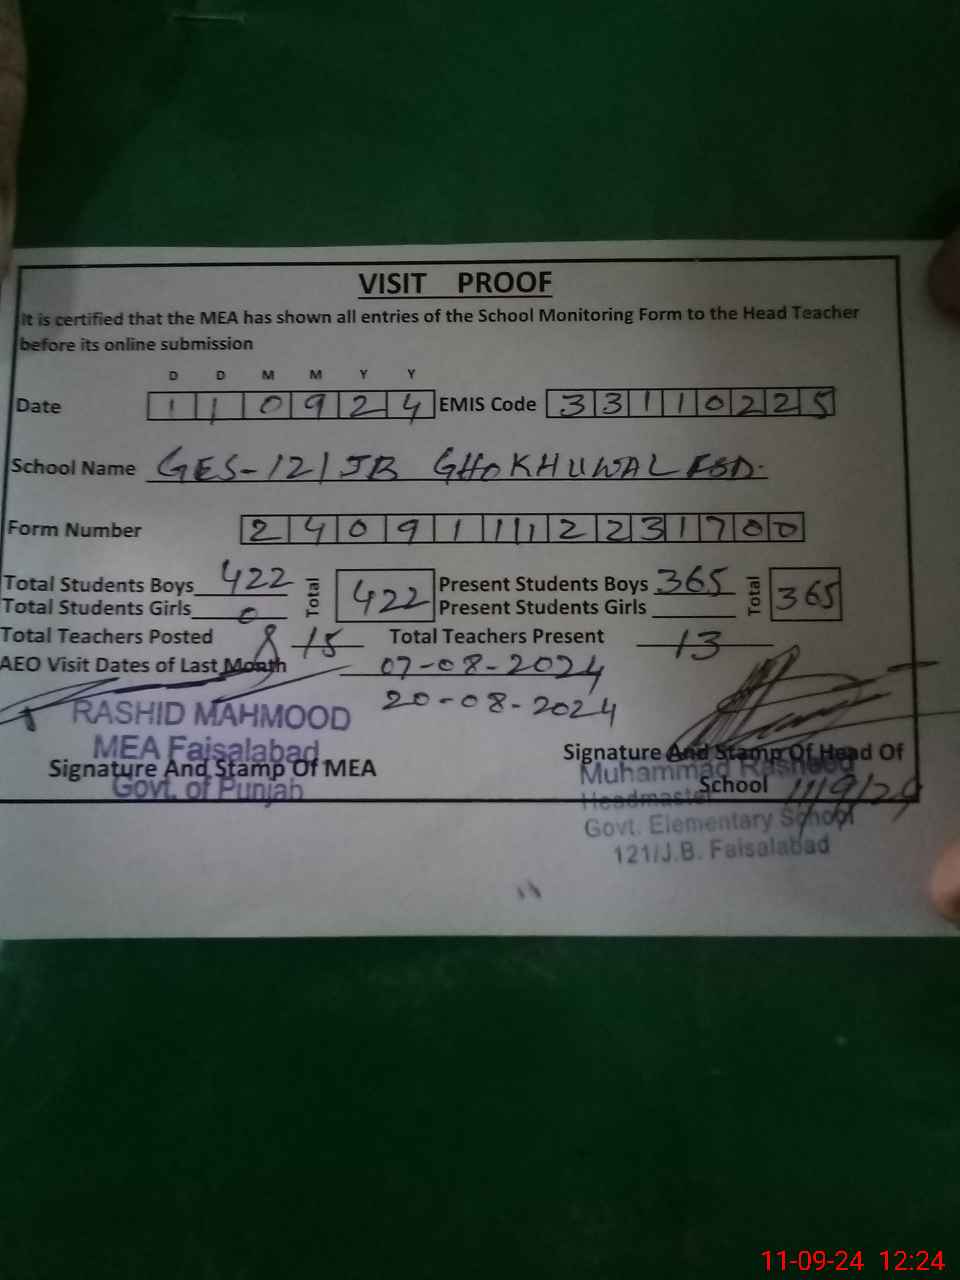 VISIT PROOF
It is certified that the MEA has shown all entries of the School Monitoring Form to the Head Teacher
before its online submission
D D M M Y Y
Date 1 1 0 9 2 4 EMIS Code 3 3 1 1 0 2 2 5
School Name GES-121 JB GHOKHUWAL FSD.
Form Number 2 4 0 9 1 1 1 2 2 3 1 7 0 0
Total Students Boys 422 Total 422 Present Students Boys 365 Total 365
Total Students Girls 0 Present Students Girls
Total Teachers Posted 15 Total Teachers Present 13
AEO Visit Dates of Last Month 07-08-2024
20-08-2024
RASHID MAHMOOD
MEA Faisalabad
Signature And Stamp Of MEA
Govt. of Punjab
Signature And Stamp Of Head Of
School 11/9/24
Muhammad Rasheed
Headmaster
Govt. Elementary School
121/J.B. Faisalabad
11-09-24 12:24